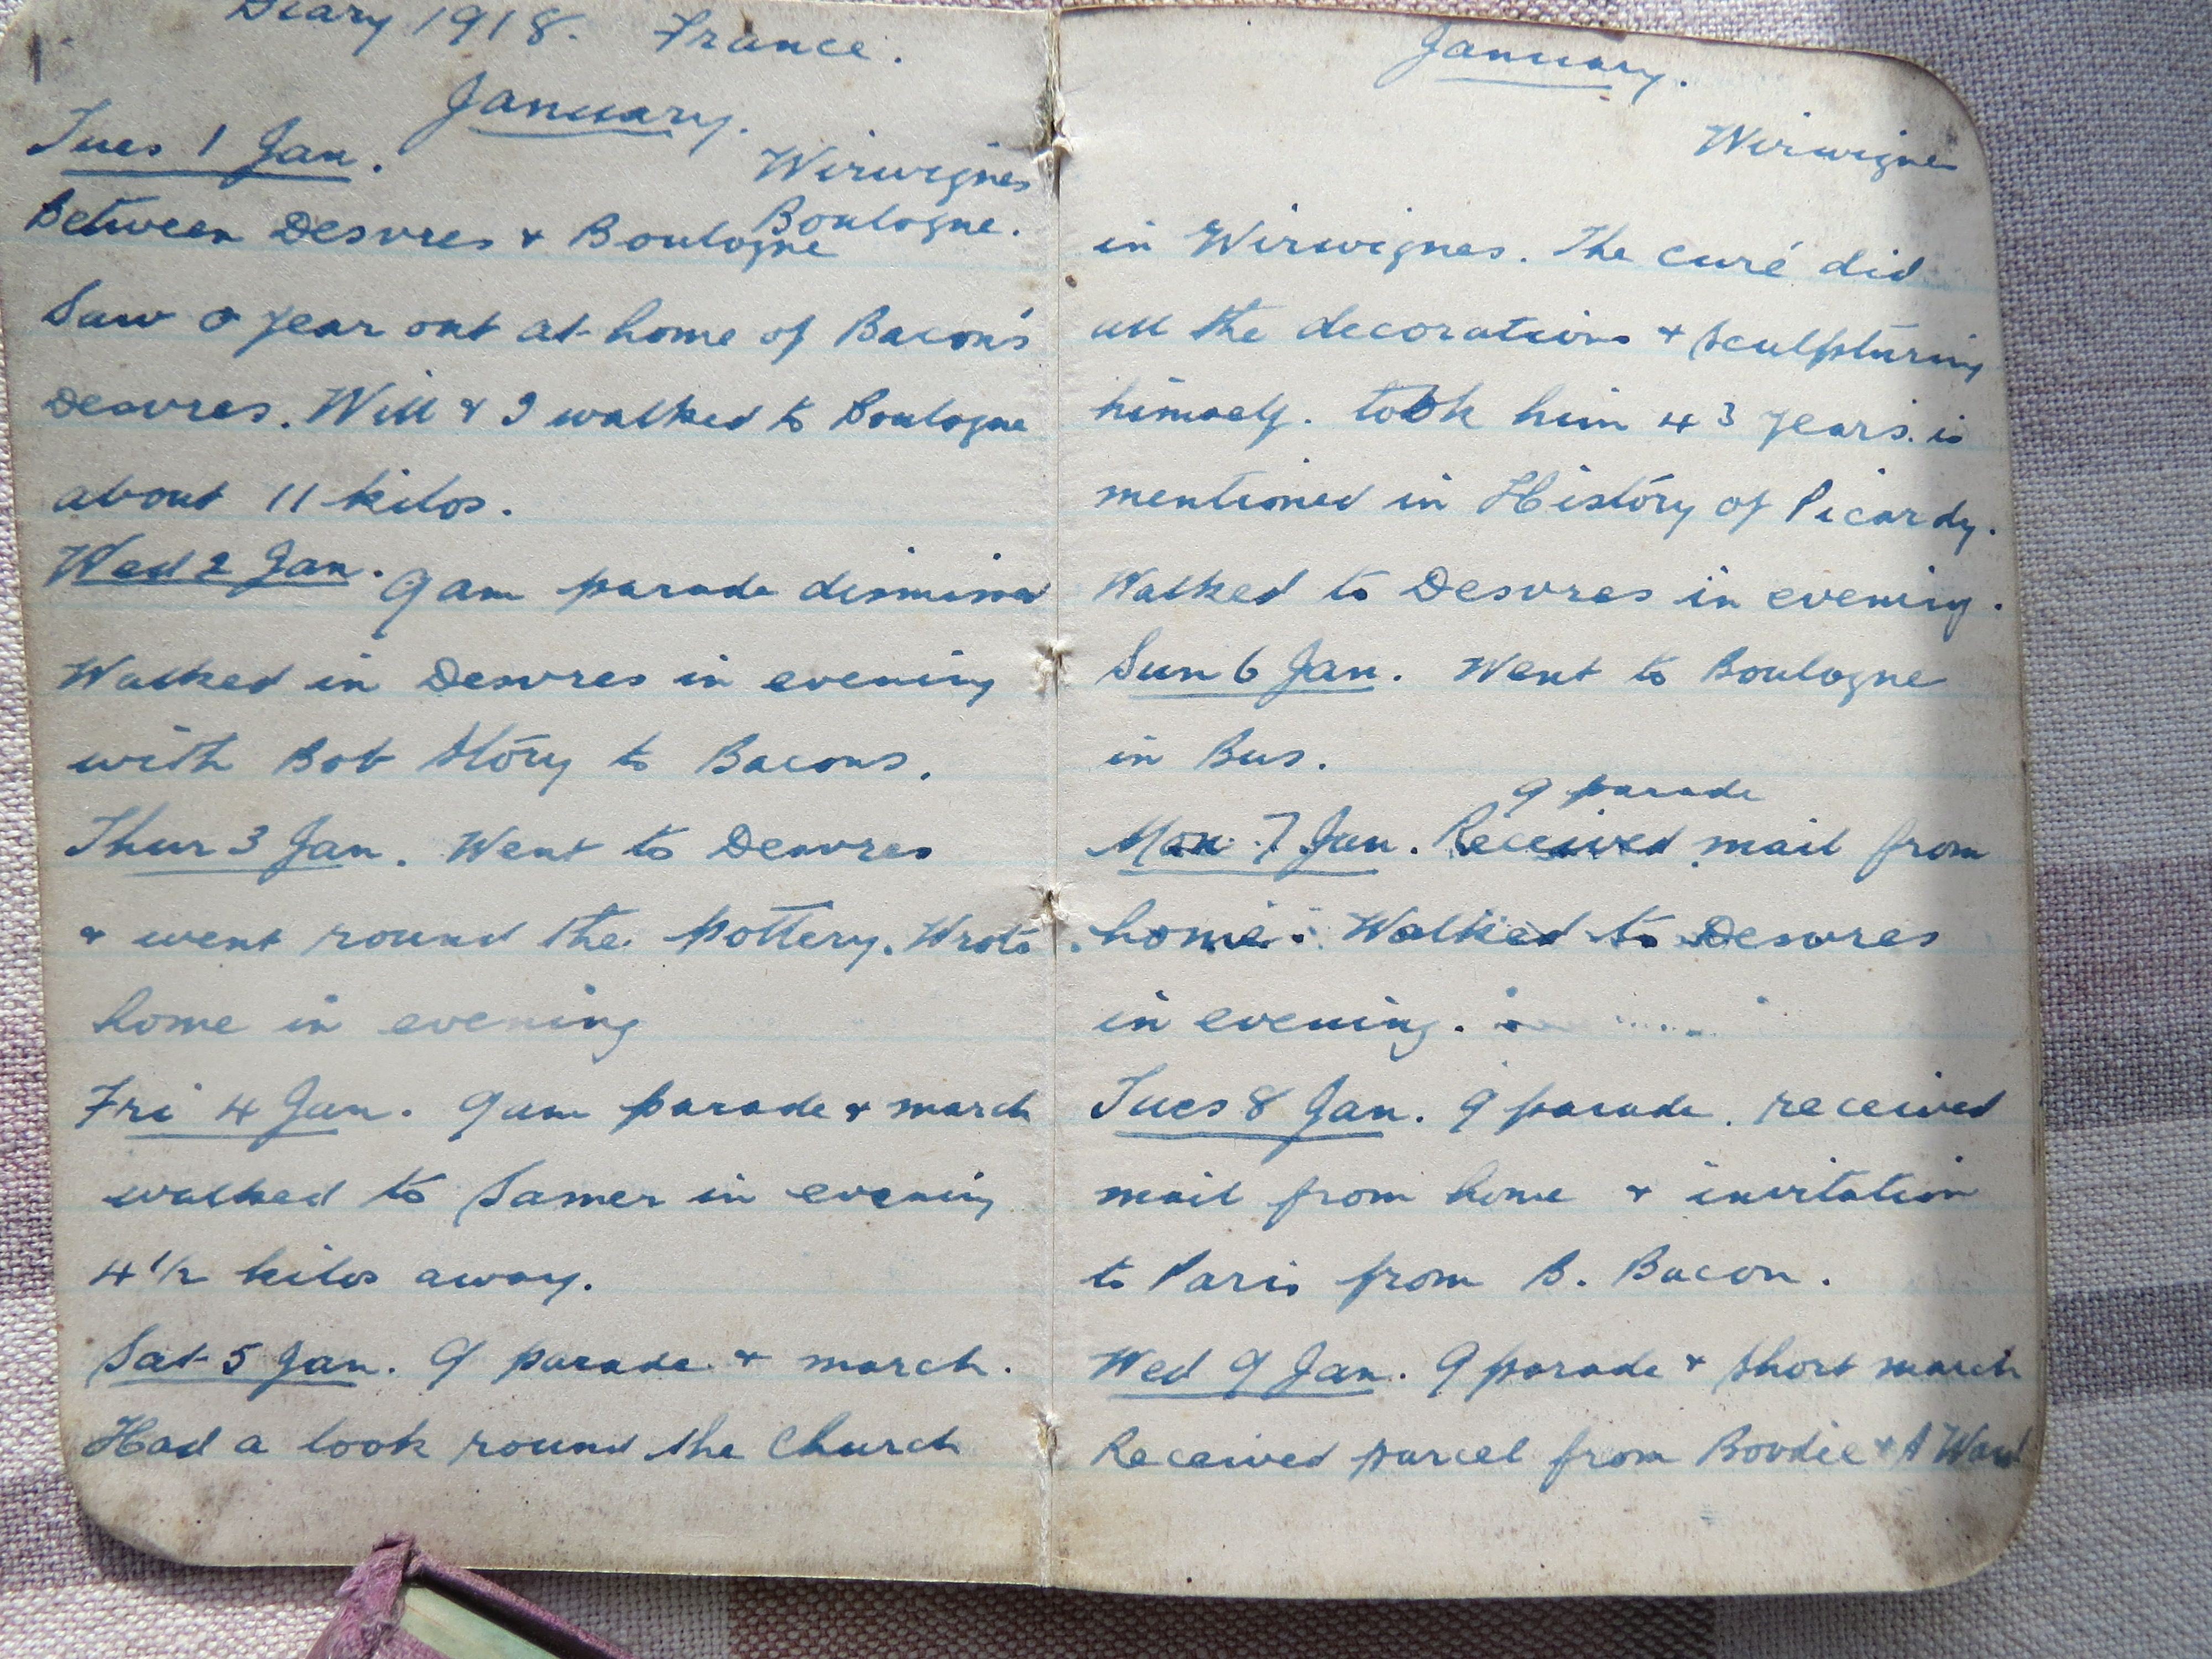 Diary 1918. France.
January.
Tues 1 Jan.
Wirwignes
Boulogne.
Between Desvres & Boulogne
Saw o year out at home of Bacon's
Desvres. Will & I walked to Boulogne
about 11 kilos.
Wed 2 Jan. 9 am parade dismissed
Walked in Desvres in evening
with Bob Story to Bacons.
Thur 3 Jan. Went to Desvres
& went round the pottery. Wrote
home in evening
Fri 4 Jan. 9 am parade & march
walked to Samer in evening
4 1/2 kilos away.
Sat 5 Jan. 9 parade & march.
Had a look round the Church
January.
Wirwigne
in Wirwignes. The curé did
all the decorations & sculpturing
himself. took him 43 years. is
mentioned in History of Picardy.
Walked to Desvres in evening.
Sun 6 Jan. Went to Boulogne
in Bus.
9 parade
Mon 7 Jan. Received mail from
home. Walked to Desvres
in evening.
Tues 8 Jan. 9 parade. received
mail from home & invitation
to Paris from B. Bacon.
Wed 9 Jan. 9 parade & short march
Received parcel from Boodie & A Ward